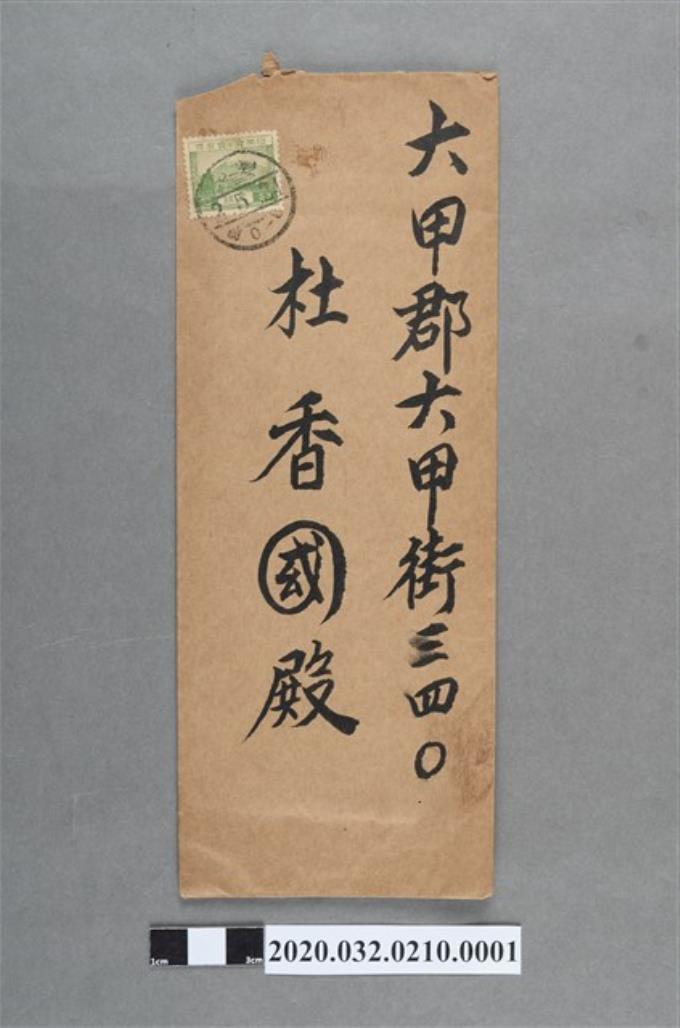 大甲郡大甲街三四〇
杜香國殿
1cm
3cm
2020.032.0210.0001